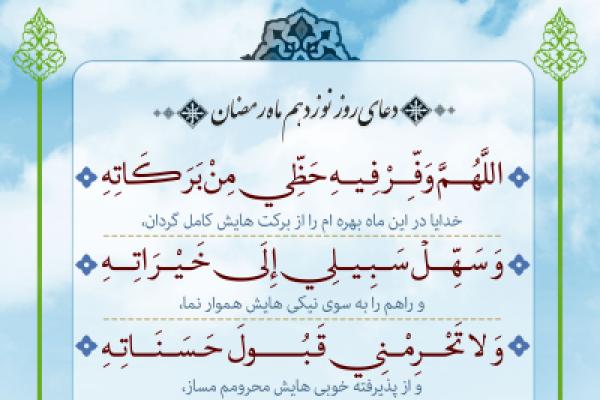 دعای روز نوزدهم ماه رمضان
اللَّهُمَّ وَفِّرْ فِيهِ حَظِّي مِنْ بَرَكَاتِهِ
خدایا در این ماه بهره ام را از برکت هایش کامل گردان،
وَ سَهِّلْ سَبِيلِي إِلَى خَيْرَاتِهِ
و راهم را به سوی نیکی هایش هموار نما،
وَ لا تَحْرِمْنِي قَبُولَ حَسَنَاتِهِ
و از پذیرفته خوبی هایش محرومم مساز،